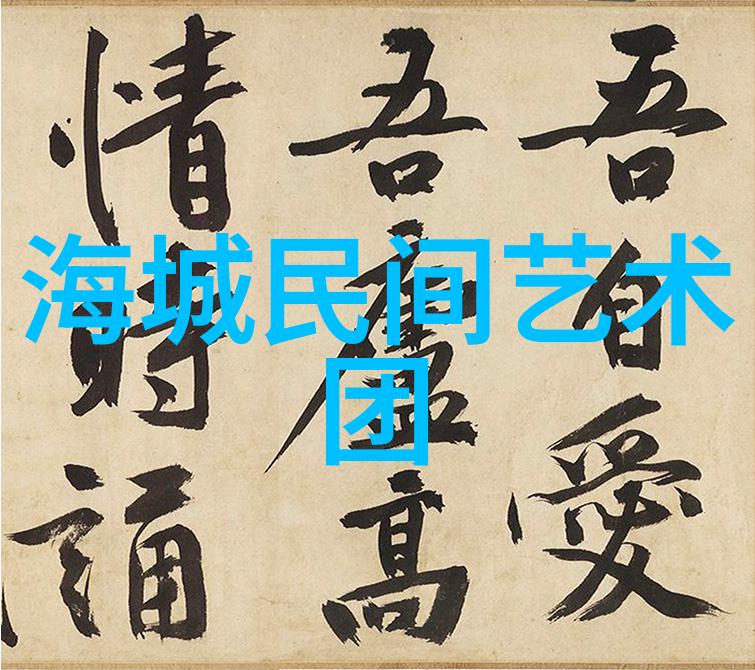 海城民间艺术
团
吾自愛
吾廬高
情時誦